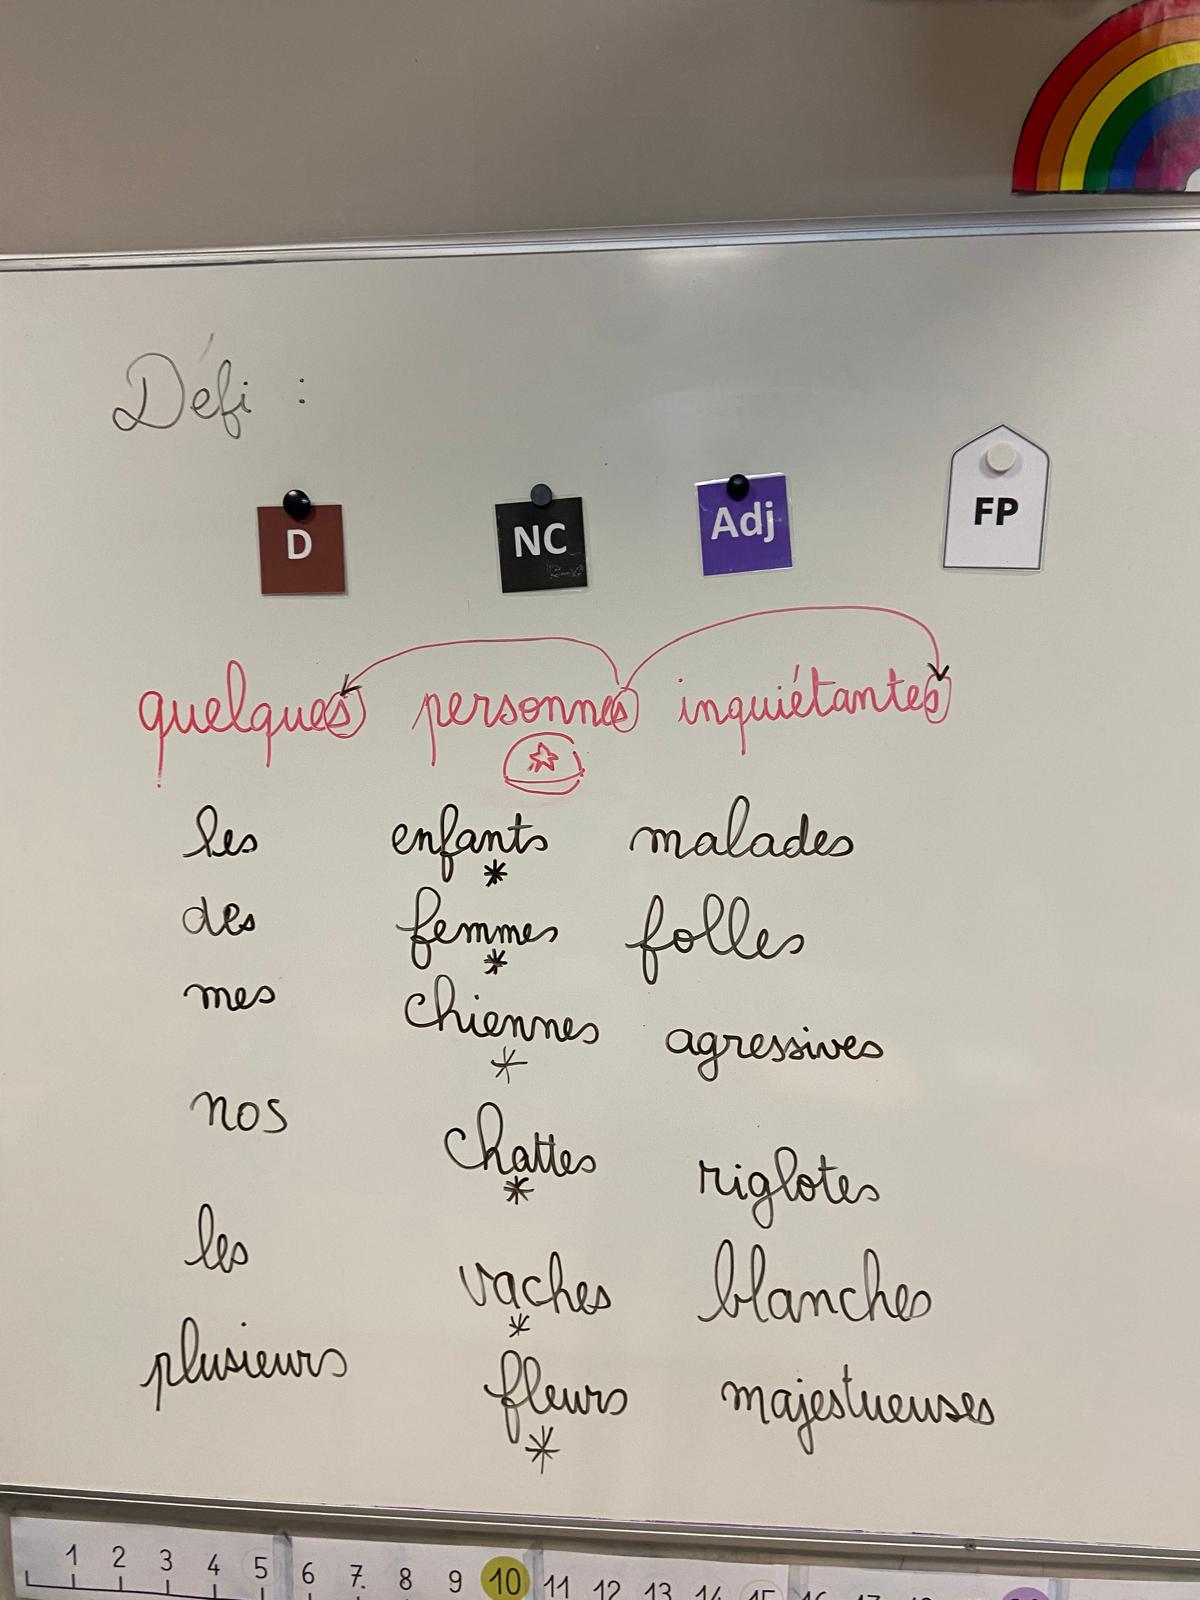 Défi :
D NC Adj FP
quelques personnes inquiétantes
les enfants malades
des femmes folles
mes chiennes agressives
nos chattes riglotes
les vaches blanches
plusieurs fleurs majestueuses
1 2 3 4 5 6 7. 8 9 10 11 12 13 14 15 16 17